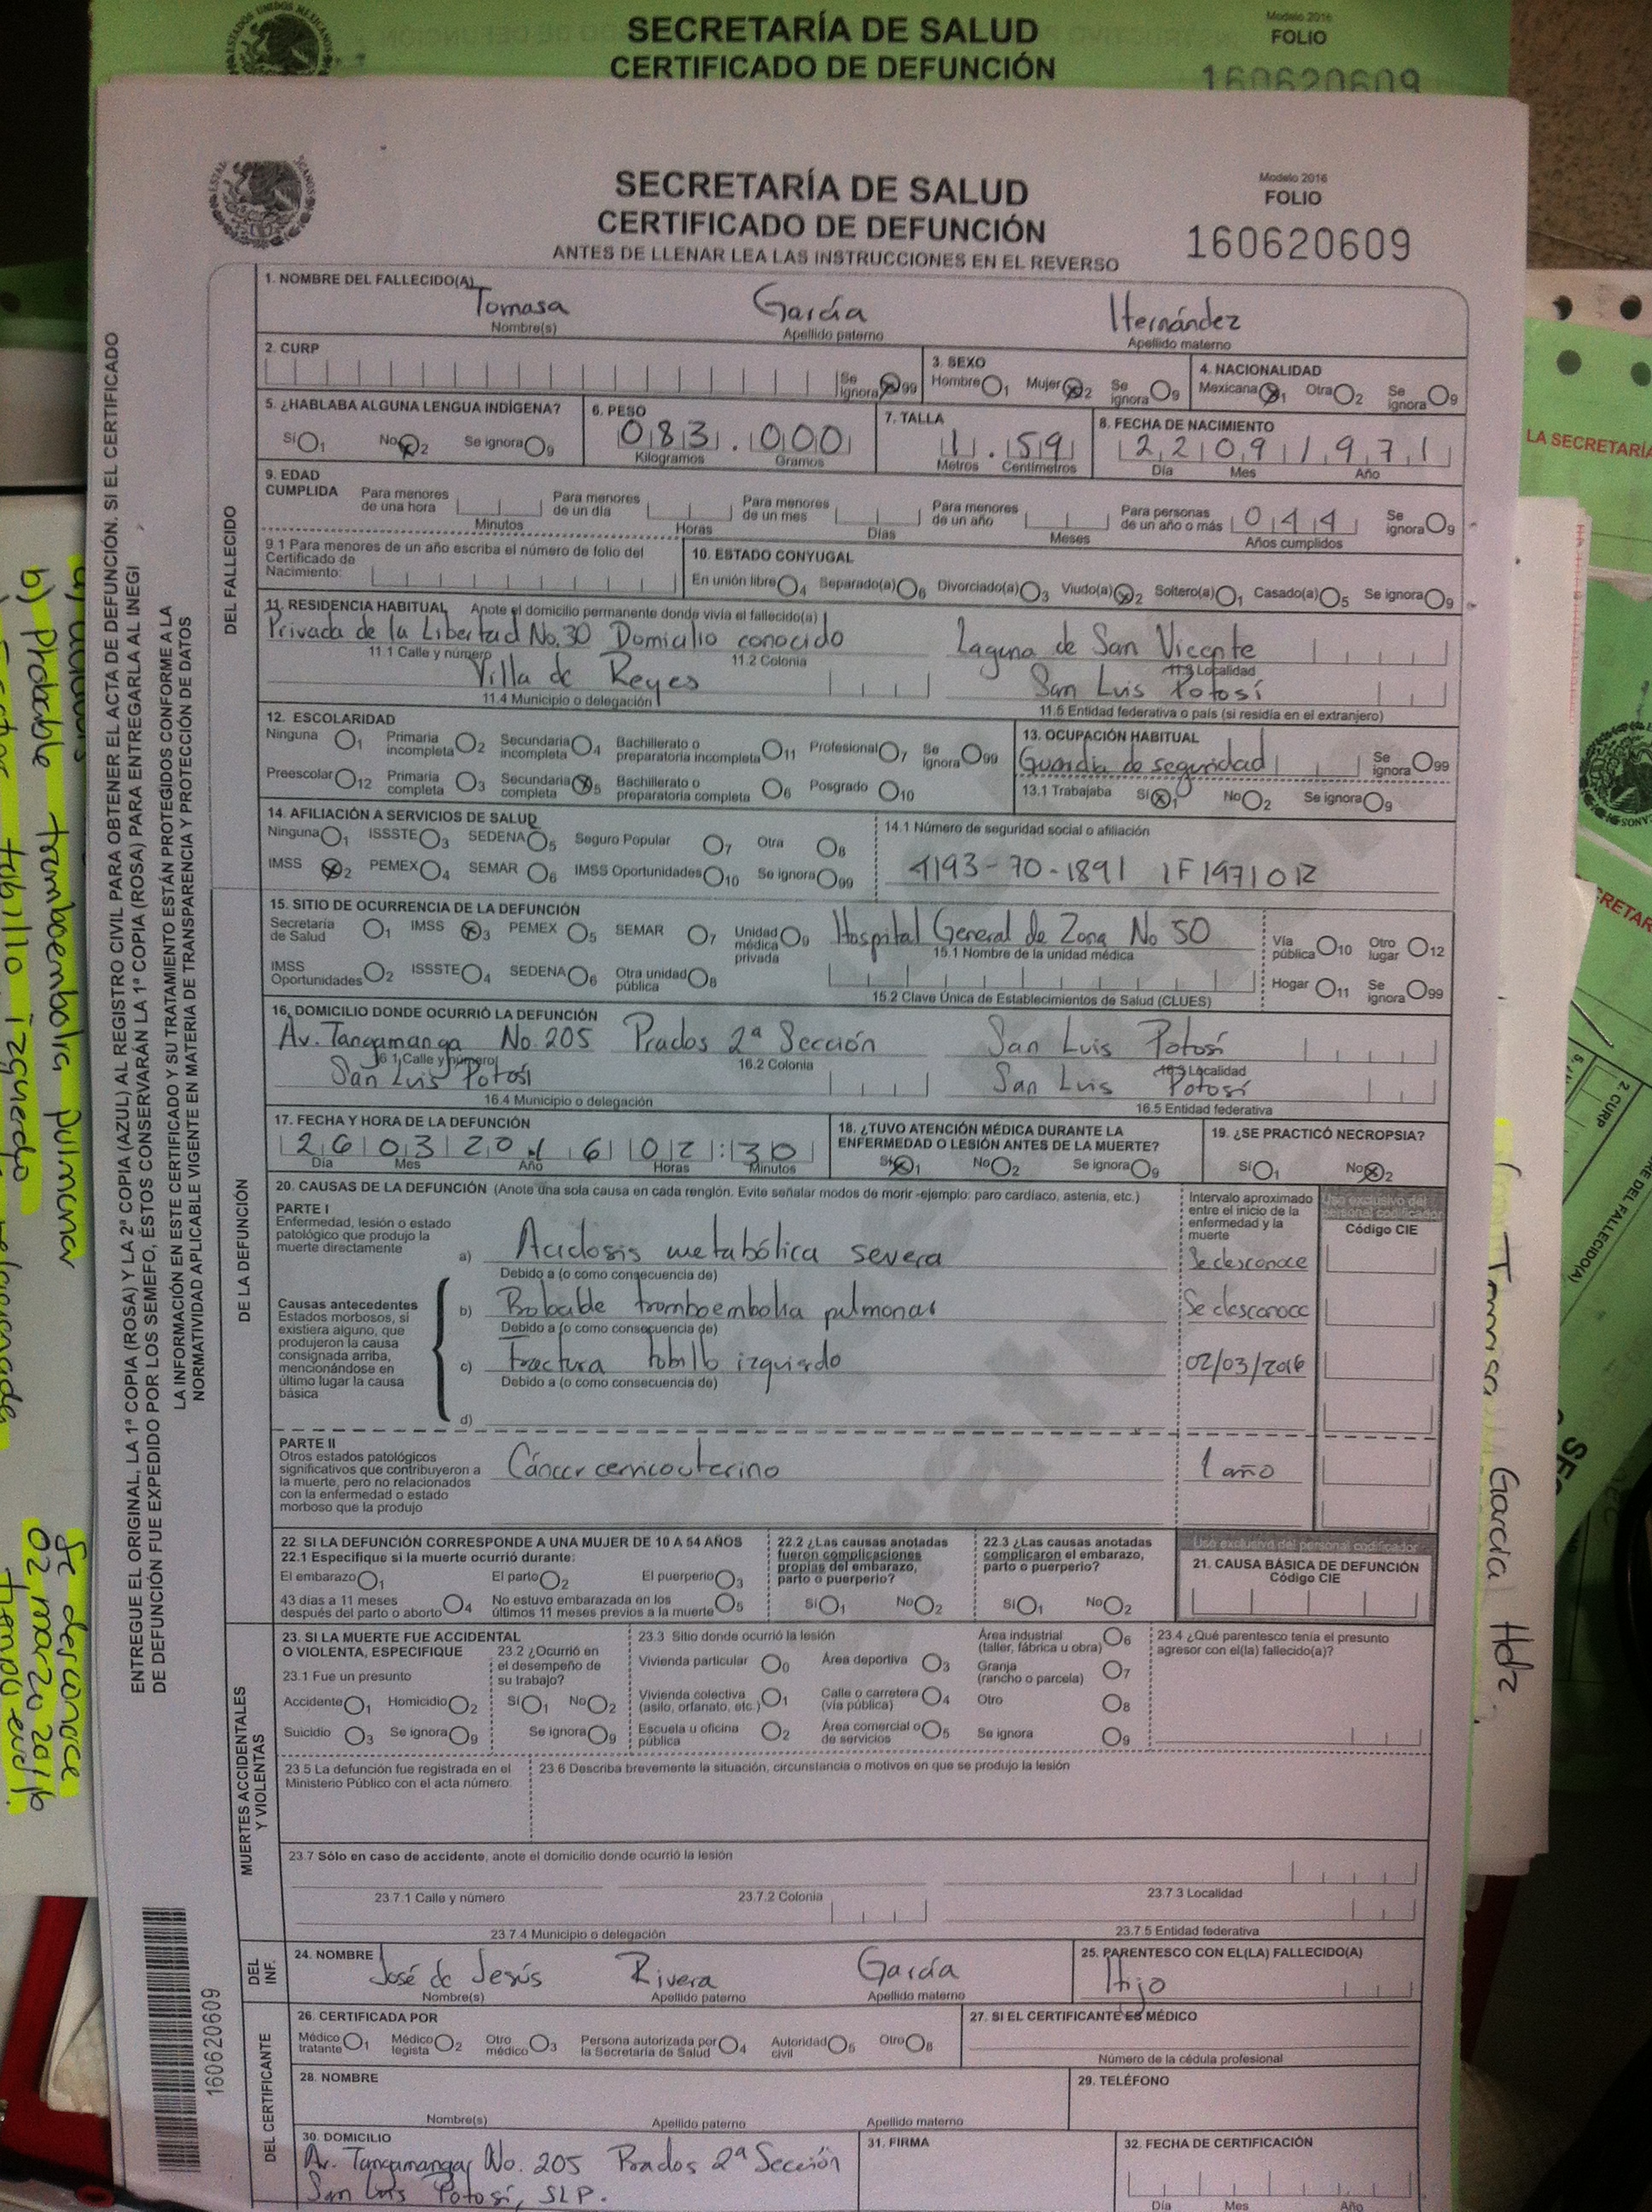 SECRETARÍA DE SALUD
CERTIFICADO DE DEFUNCIÓN
Modelo 2016
FOLIO
160620609
SECRETARÍA DE SALUD
CERTIFICADO DE DEFUNCIÓN
ANTES DE LLENAR LEA LAS INSTRUCCIONES EN EL REVERSO
Modelo 2016
FOLIO
160620609
ENTREGUE EL ORIGINAL, LA 1ª COPIA (ROSA) Y LA 2ª COPIA (AZUL) AL REGISTRO CIVIL PARA OBTENER EL ACTA DE DEFUNCIÓN. SI EL CERTIFICADO
DE DEFUNCIÓN FUE EXPEDIDO POR LOS SEMEFO, ÉSTOS CONSERVARÁN LA 1ª COPIA (ROSA) PARA ENTREGARLA AL INEGI
LA INFORMACIÓN EN ESTE CERTIFICADO Y SU TRATAMIENTO ESTÁN PROTEGIDOS CONFORME A LA
NORMATIVIDAD APLICABLE VIGENTE EN MATERIA DE TRANSPARENCIA Y PROTECCIÓN DE DATOS
DEL FALLECIDO
1. NOMBRE DEL FALLECIDO(A)
Tomasa García Hernández
Nombre(s) Apellido paterno Apellido materno
2. CURP Se ignora 99
3. SEXO
Hombre 1 Mujer 2 Se ignora 9
4. NACIONALIDAD
Mexicana 1 Otra 2 Se ignora 9
5. ¿HABLABA ALGUNA LENGUA INDÍGENA?
Sí 1 No 2 Se ignora 9
6. PESO
083.000
Kilogramos Gramos
7. TALLA
1.59
Metros Centímetros
8. FECHA DE NACIMIENTO
22091971
Día Mes Año
9. EDAD CUMPLIDA
Para menores de una hora Minutos
Para menores de un día Horas
Para menores de un mes Días
Para menores de un año Meses
Para personas de un año o más 044 Años cumplidos
Se ignora 9
9.1 Para menores de un año escriba el número de folio del Certificado de Nacimiento:
10. ESTADO CONYUGAL
En unión libre 4 Separado(a) 6 Divorciado(a) 3 Viudo(a) 2 Soltero(a) 1 Casado(a) 5 Se ignora 9
11. RESIDENCIA HABITUAL Anote el domicilio permanente donde vivía el fallecido(a)
Privada de la Libertad No.30 Domicilio conocido Laguna de San Vicente
11.1 Calle y número 11.2 Colonia 11.3 Localidad
Villa de Reyes San Luis Potosí
11.4 Municipio o delegación 11.5 Entidad federativa o país (si residía en el extranjero)
12. ESCOLARIDAD
Ninguna 1 Primaria incompleta 2 Secundaria incompleta 4 Bachillerato o preparatoria incompleta 11 Profesional 7 Se ignora 99
Preescolar 12 Primaria completa 3 Secundaria completa 5 Bachillerato o preparatoria completa 6 Posgrado 10
13. OCUPACIÓN HABITUAL
Guardia de seguridad Se ignora 99
13.1 Trabajaba Sí 1 No 2 Se ignora 9
14. AFILIACIÓN A SERVICIOS DE SALUD
Ninguna 1 ISSSTE 3 SEDENA 5 Seguro Popular 7 Otra 8
IMSS 2 PEMEX 4 SEMAR 6 IMSS Oportunidades 10 Se ignora 99
14.1 Número de seguridad social o afiliación
4193-70-1891 1F1971OR
DE LA DEFUNCIÓN
15. SITIO DE OCURRENCIA DE LA DEFUNCIÓN
Secretaría de Salud 1 IMSS 3 PEMEX 5 SEMAR 7 Unidad médica privada 9
Hospital General de Zona No 50
15.1 Nombre de la unidad médica
Vía pública 10 Otro lugar 12
IMSS Oportunidades 2 ISSSTE 4 SEDENA 6 Otra unidad pública 8
15.2 Clave Única de Establecimientos de Salud (CLUES)
Hogar 11 Se ignora 99
16. DOMICILIO DONDE OCURRIÓ LA DEFUNCIÓN
Av. Tangamanga No. 205 Prados 2ª Sección San Luis Potosí
16.1 Calle y número 16.2 Colonia 16.3 Localidad
San Luis Potosí San Luis Potosí
16.4 Municipio o delegación 16.5 Entidad federativa
17. FECHA Y HORA DE LA DEFUNCIÓN
26032016 02:30
Día Mes Año Horas Minutos
18. ¿TUVO ATENCIÓN MÉDICA DURANTE LA ENFERMEDAD O LESIÓN ANTES DE LA MUERTE?
Sí 1 No 2 Se ignora 9
19. ¿SE PRACTICÓ NECROPSIA?
Sí 1 No 2
20. CAUSAS DE LA DEFUNCIÓN (Anote una sola causa en cada renglón. Evite señalar modos de morir -ejemplo: paro cardíaco, astenia, etc.)
Intervalo aproximado entre el inicio de la enfermedad y la muerte
Uso exclusivo del personal codificador
Código CIE
PARTE I
Enfermedad, lesión o estado patológico que produjo la muerte directamente
a) Acidosis metabólica severa Se desconoce
Debido a (o como consecuencia de)
Causas antecedentes
Estados morbosos, si existiera alguno, que produjeron la causa consignada arriba, mencionándose en último lugar la causa básica
b) Probable tromboembolia pulmonar Se desconoce
Debido a (o como consecuencia de)
c) Fractura tobillo izquierdo 02/03/2016
Debido a (o como consecuencia de)
d)
PARTE II
Otros estados patológicos significativos que contribuyeron a la muerte, pero no relacionados con la enfermedad o estado morboso que la produjo
Cáncer cervicouterino 1 año
22. SI LA DEFUNCIÓN CORRESPONDE A UNA MUJER DE 10 A 54 AÑOS
22.1 Especifique si la muerte ocurrió durante:
El embarazo 1 El parto 2 El puerperio 3
43 días a 11 meses después del parto o aborto 4 No estuvo embarazada en los últimos 11 meses previos a la muerte 5
22.2 ¿Las causas anotadas fueron complicaciones propias del embarazo, parto o puerperio?
Sí 1 No 2
22.3 ¿Las causas anotadas complicaron el embarazo, parto o puerperio?
Sí 1 No 2
Uso exclusivo del personal codificador
21. CAUSA BÁSICA DE DEFUNCIÓN
Código CIE
MUERTES ACCIDENTALES Y VIOLENTAS
23. SI LA MUERTE FUE ACCIDENTAL O VIOLENTA, ESPECIFIQUE
23.1 Fue un presunto
Accidente 1 Homicidio 2
Suicidio 3 Se ignora 9
23.2 ¿Ocurrió en el desempeño de su trabajo?
Sí 1 No 2
Se ignora 9
23.3 Sitio donde ocurrió la lesión
Vivienda particular 0 Área deportiva 3 Área industrial (taller, fábrica u obra) 6
Vivienda colectiva (asilo, orfanato, etc.) 1 Calle o carretera (vía pública) 4 Granja (rancho o parcela) 7
Escuela u oficina pública 2 Área comercial o de servicios 5 Otro 8
Se ignora 9
23.4 ¿Qué parentesco tenía el presunto agresor con el(la) fallecido(a)?
23.5 La defunción fue registrada en el Ministerio Público con el acta número:
23.6 Describa brevemente la situación, circunstancia o motivos en que se produjo la lesión
23.7 Sólo en caso de accidente, anote el domicilio donde ocurrió la lesión
23.7.1 Calle y número 23.7.2 Colonia 23.7.3 Localidad
23.7.4 Municipio o delegación 23.7.5 Entidad federativa
DEL INF.
24. NOMBRE
José de Jesús Rivera García
Nombre(s) Apellido paterno Apellido materno
25. PARENTESCO CON EL(LA) FALLECIDO(A)
Hijo
DEL CERTIFICANTE
26. CERTIFICADA POR
Médico tratante 1 Médico legista 2 Otro médico 3 Persona autorizada por la Secretaría de Salud 4 Autoridad civil 5 Otro 8
27. SI EL CERTIFICANTE ES MÉDICO
Número de la cédula profesional
28. NOMBRE
Nombre(s) Apellido paterno Apellido materno
29. TELÉFONO
30. DOMICILIO
Av. Tangamanga No. 205 Prados 2ª Sección
San Luis Potosí, SLP.
31. FIRMA
32. FECHA DE CERTIFICACIÓN
Día Mes Año
160620609
b) Probable tromboembolia pulmonar
tobillo izquierdo
Se desconoce
02 marzo 2016
Tomasa García Hdz.
LA SECRETARÍA
2. CURP
DEL FALLECIDO(A)